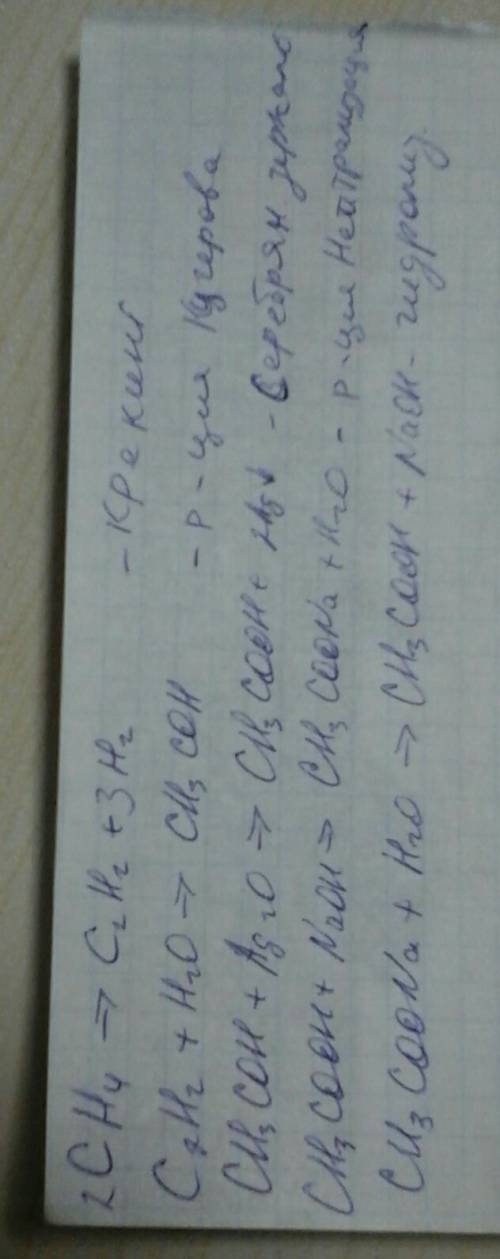 2CH4 => C2H2 + 3H2 - Крекинг
C2H2 + H2O => CH3COH - Р-ция Кучерова
CH3COH + Ag2O => CH3COOH + 2Ag↓ - Серебрян зеркало
CH3COOH + NaOH => CH3COONa + H2O - Р-ция Нейтрализация
CH3COONa + H2O => CH3COOH + NaOH - гидролиз.